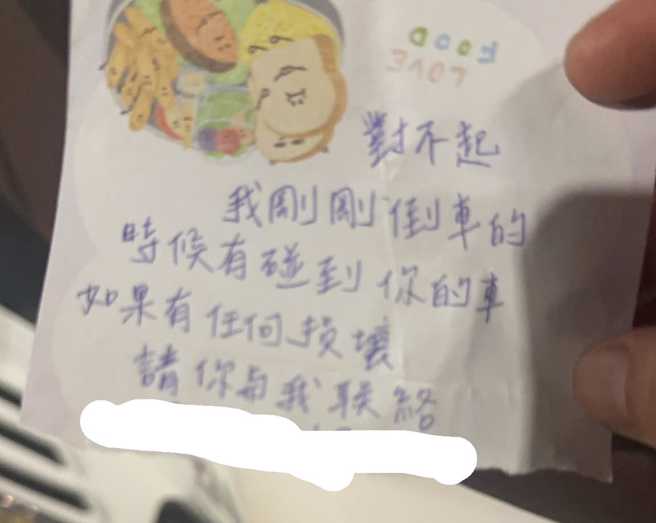 FOOD
LOVE
對不起
我剛剛倒車的
時候有碰到你的車
如果有任何损壞
請你与我联絡